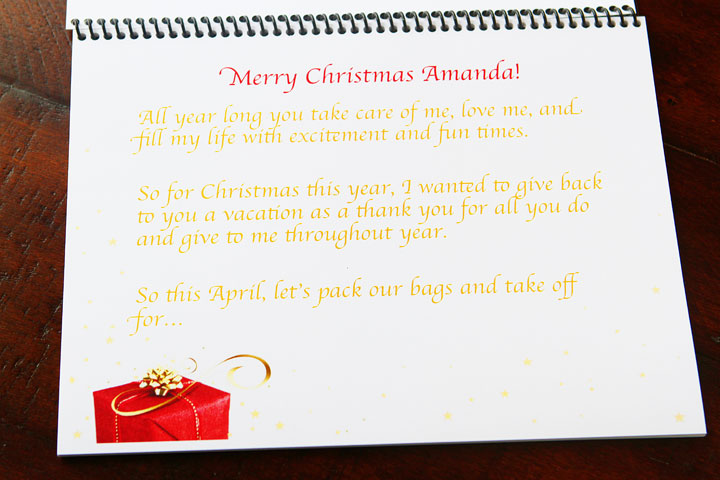 Merry Christmas Amanda!
All year long you take care of me, love me, and
fill my life with excitement and fun times.
So for Christmas this year, I wanted to give back
to you a vacation as a thank you for all you do
and give to me throughout year.
So this April, let's pack our bags and take off
for...